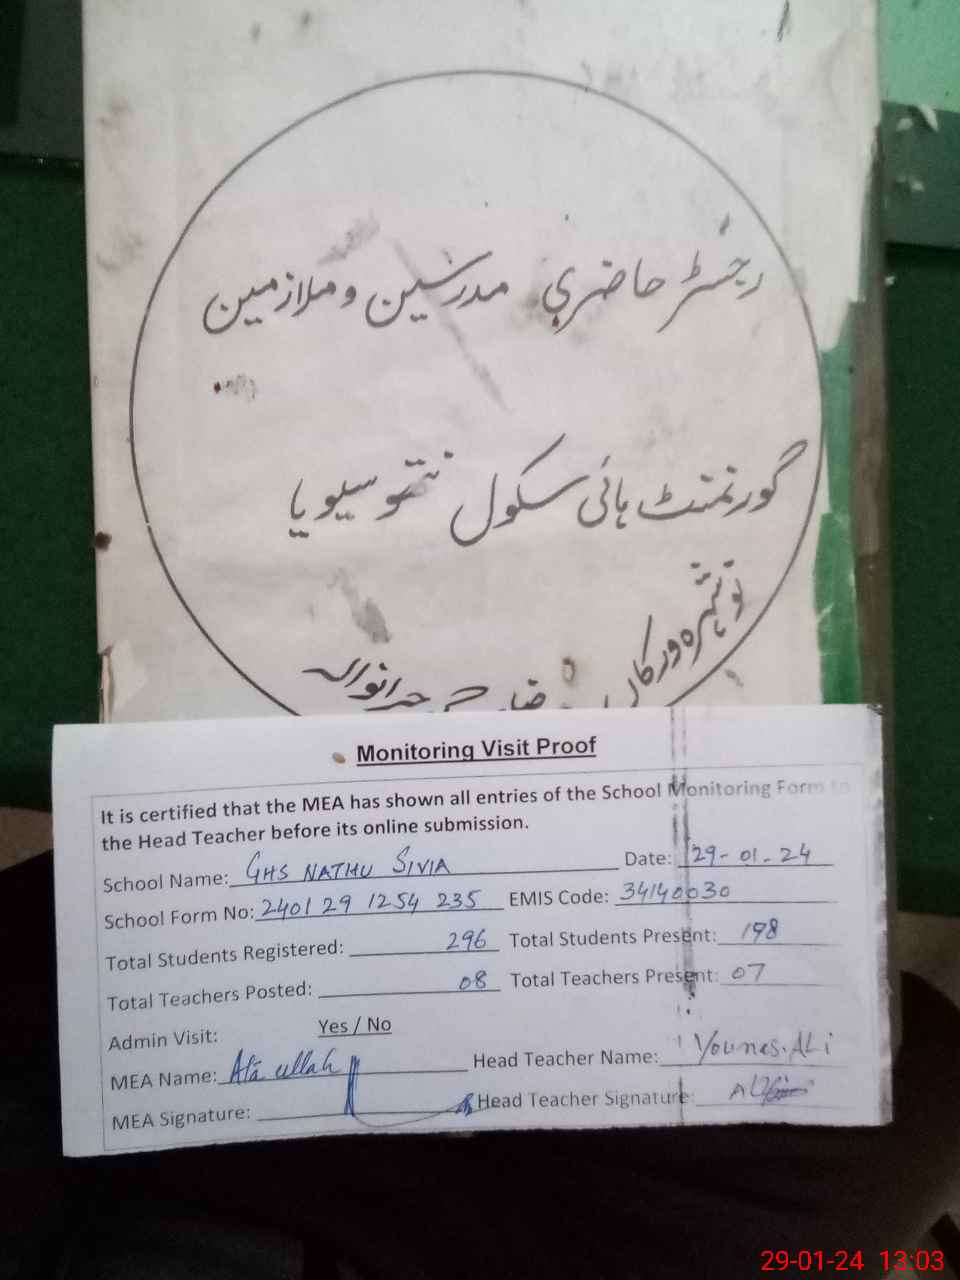 رجسٹر حاضری مدرسین و ملازمین
گورنمنٹ ہائی سکول نتھو سیویا
نوشہرہ ورکاں
Monitoring Visit Proof
It is certified that the MEA has shown all entries of the School Monitoring Form to
the Head Teacher before its online submission.
School Name: GHS NATHU SIVIA Date: 29-01-24
School Form No: 2401 29 1254 235 EMIS Code: 34140030
Total Students Registered: 296 Total Students Present: 198
Total Teachers Posted: 08 Total Teachers Present: 07
Admin Visit: Yes / No
MEA Name: Ata ullah Head Teacher Name: Younas. ALi
MEA Signature: Head Teacher Signature:
29-01-24 13:03